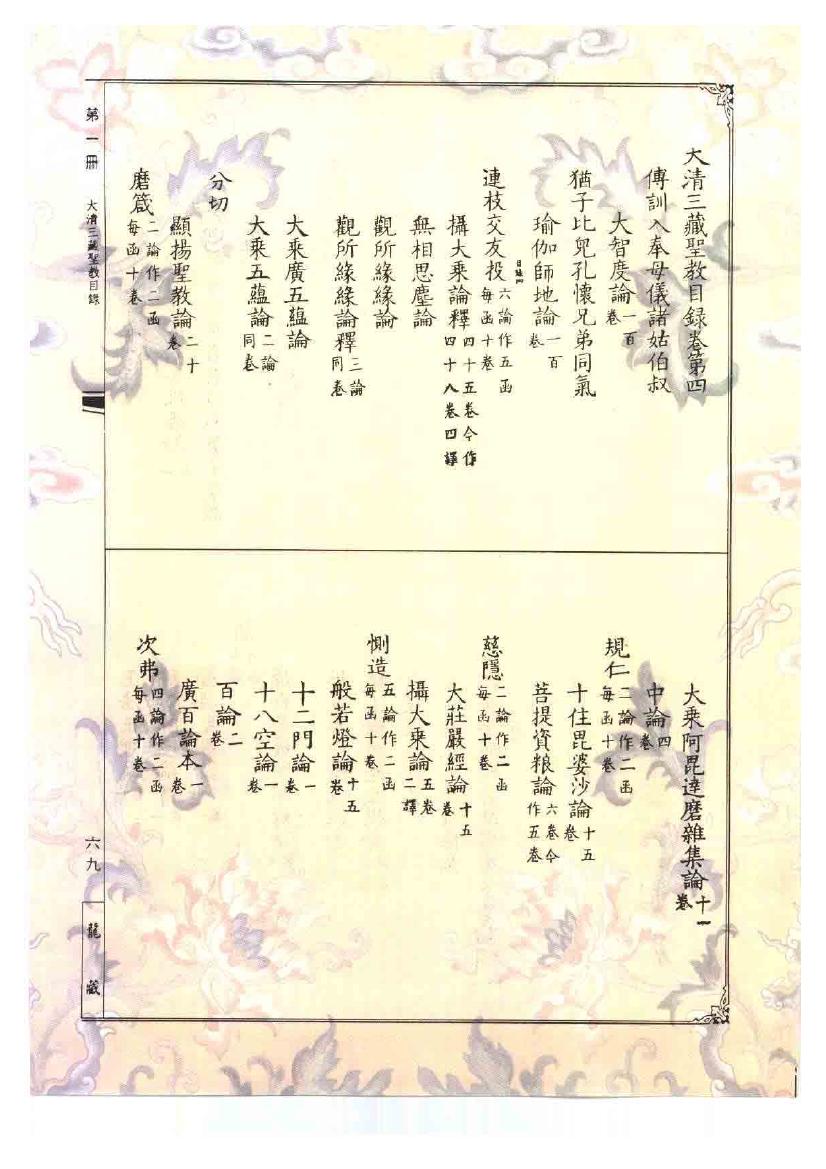 大清三藏聖教目錄卷第四
傳訓入奉母儀諸姑伯叔
大智度論一百卷
猶子比兒孔懷兄弟同氣
瑜伽師地論一百卷
目錄四
連枝交友投六論作五函每函十卷
攝大乘論釋四十五卷今作四十八卷四譯
無相思塵論
觀所緣緣論
觀所緣緣論釋三論同卷
大乘廣五蘊論
大乘五蘊論二論同卷
分切
顯揚聖教論二十卷
磨箴二論作二函每函十卷
大乘阿毘達磨雜集論十一卷
中論四卷
規仁二論作二函每函十卷
十住毘婆沙論十五卷
菩提資粮論六卷今作五卷
慈隱二論作二函每函十卷
大莊嚴經論十五卷
攝大乘論五卷二譯
惻造五論作二函每函十卷
般若燈論十五卷
十二門論一卷
十八空論一卷
百論二卷
廣百論本一卷
次弗四論作二函每函十卷
第一冊 大清三藏聖教目錄
六九
龍藏